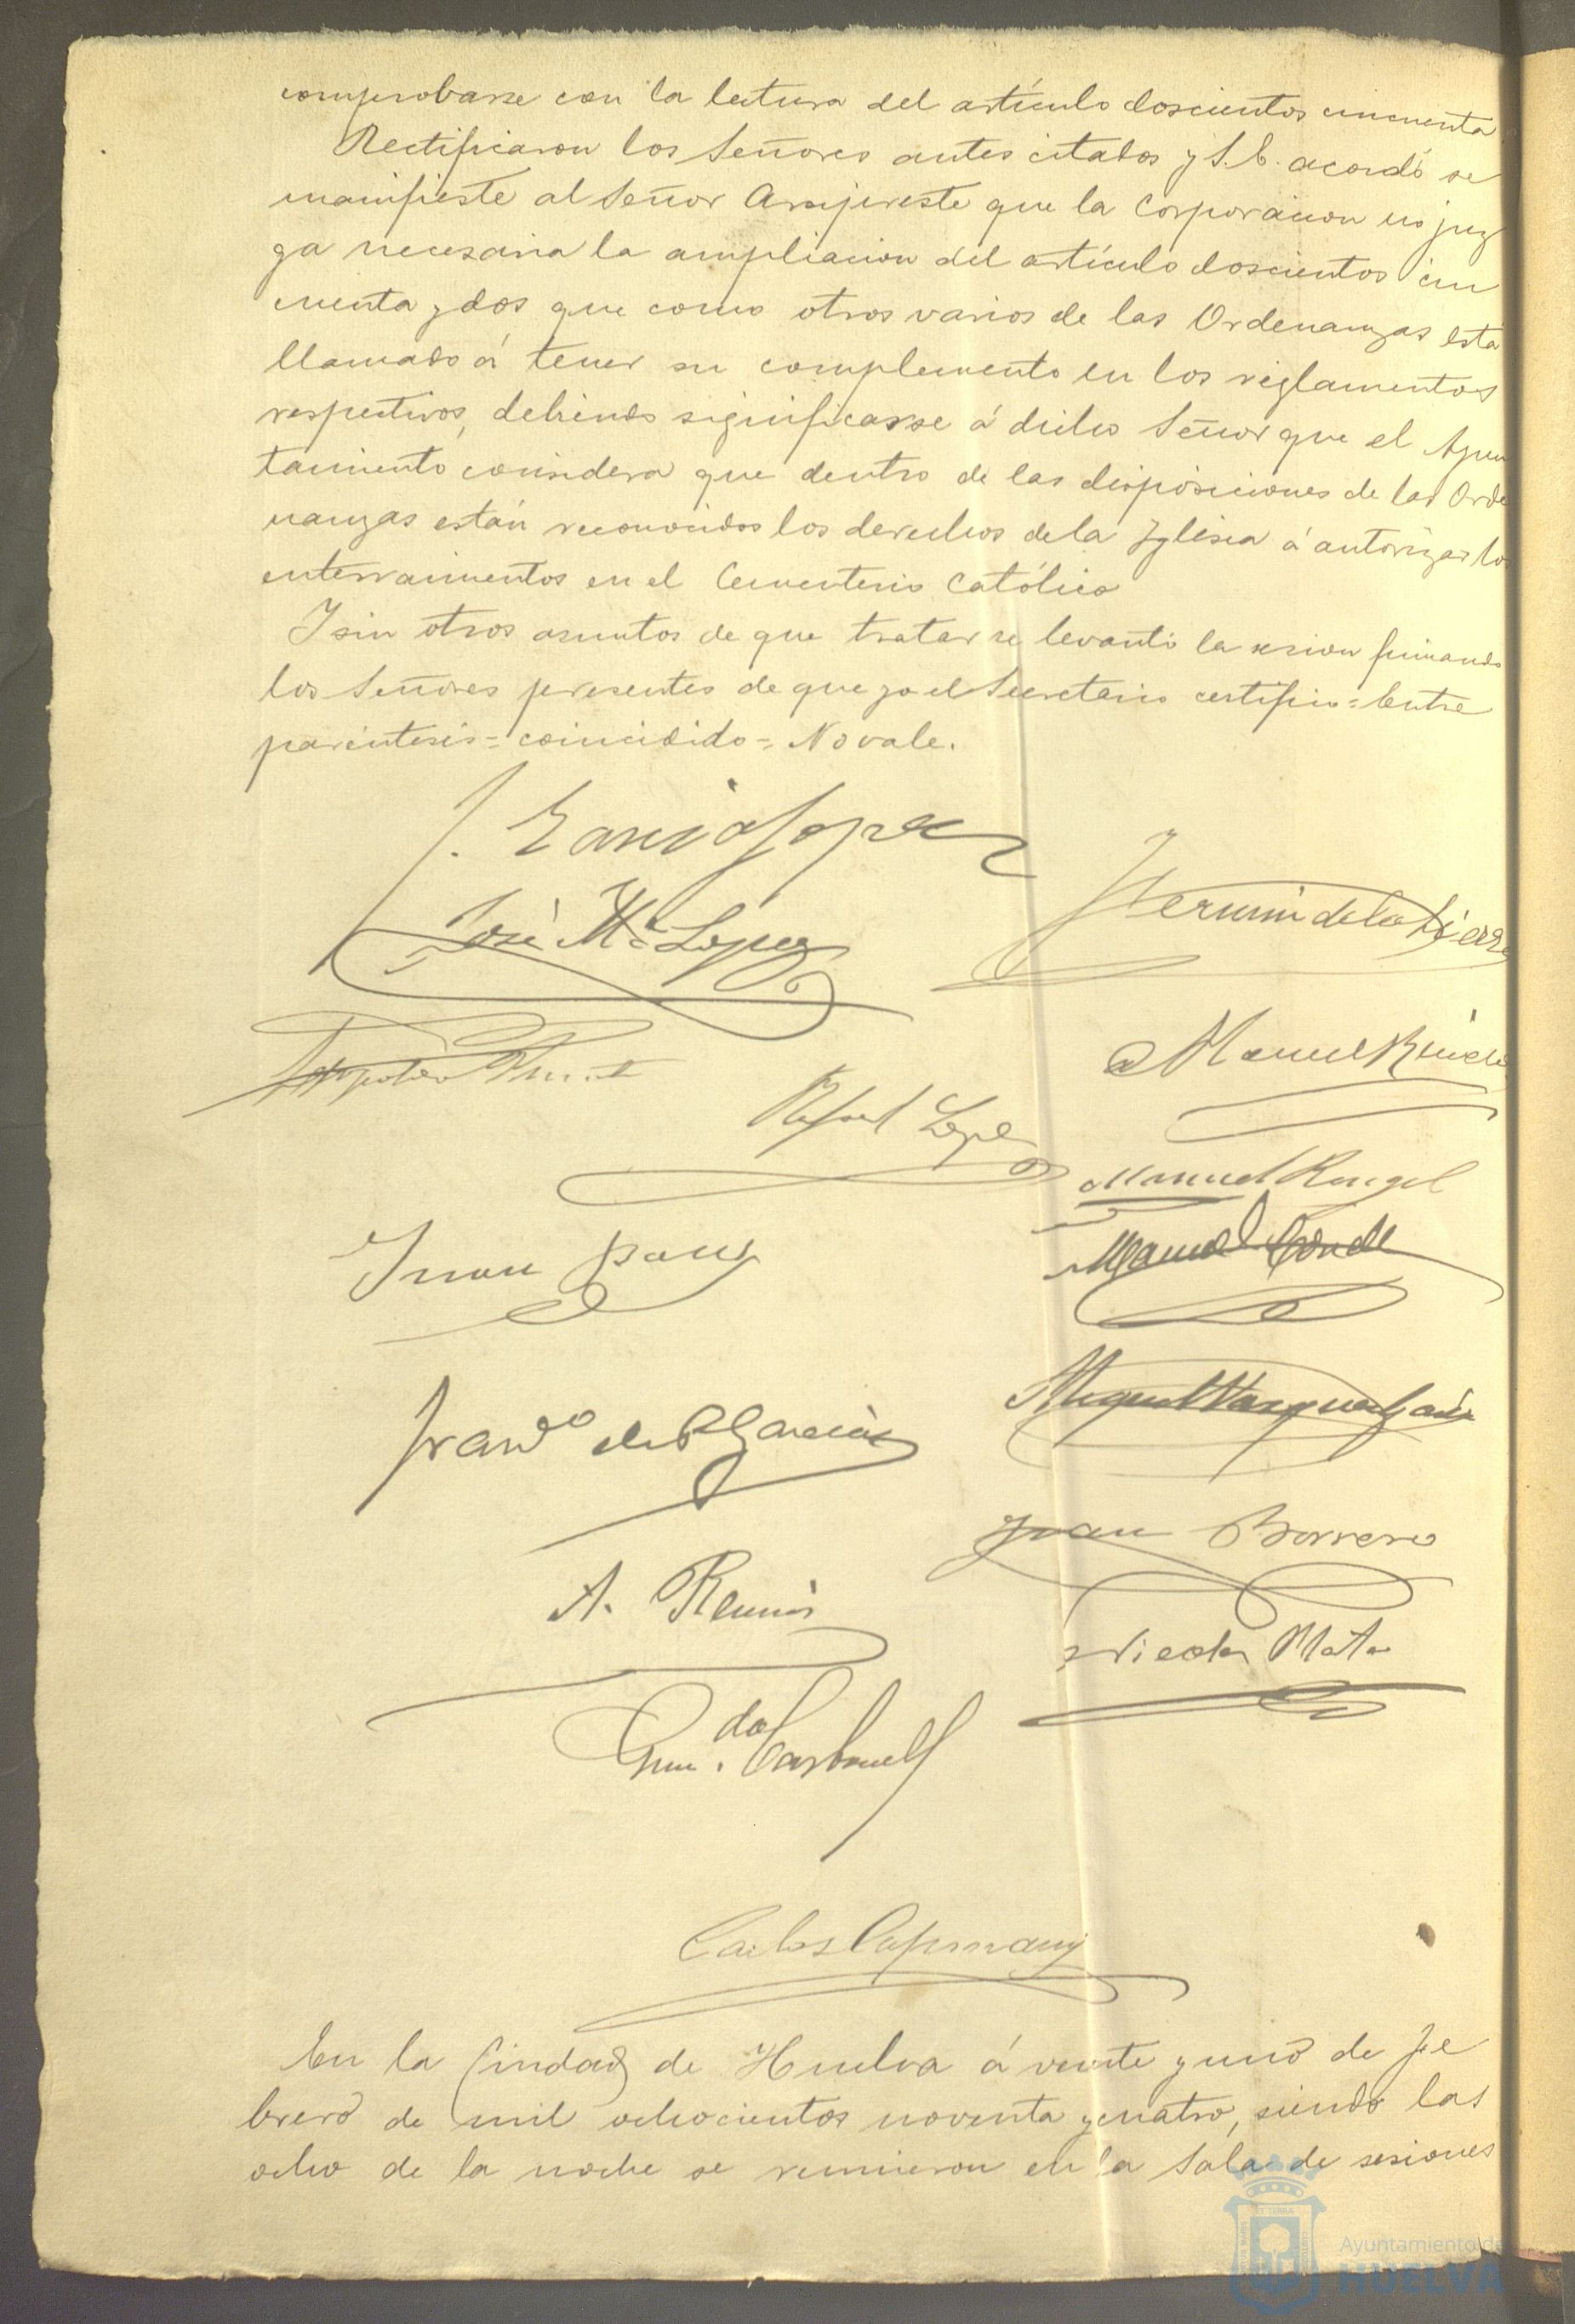 comprobarse con la lectura del artículo doscientos cincuenta
Rectificaron los Señores antes citados y S. C. acordó se
manifieste al Señor Arcipreste que la Corporacion no juz
ga necesaria la ampliacion del artículo doscientos cin
cuenta y dos que como otros varios de las Ordenanzas está
llamado á tener su complemento en los reglamentos
respectivos, debiendo significarse á dicho Señor que el Ayun
tamiento considera que dentro de las disposiciones de las Orde
nanzas están reconocidos los derechos de la Iglesia á autorizar los
enterramientos en el Cementerio Católico
Y sin otros asuntos de que tratar se levantó la sesion firmando
los Señores presentes de que yo el Secretario certifico = Entre
paréntesis = coincidido = No vale.
J. García Lopez
José Mª Lopez
Fermin de la Sierra
Manuel
Rafael Lopez
Manuel Rangel
Juan
Manuel Conde
Miguel Vazquez
Franco de P. García
Juan Borrero
A.
Nicolas Mata
Gum.do Carbonell
Carlos Capmany
En la Ciudad de Huelva á veinte y uno de Fe
brero de mil ochocientos noventa y cuatro, siendo las
ocho de la noche se reunieron en la Sala de sesiones
Ayuntamiento de
HUELVA